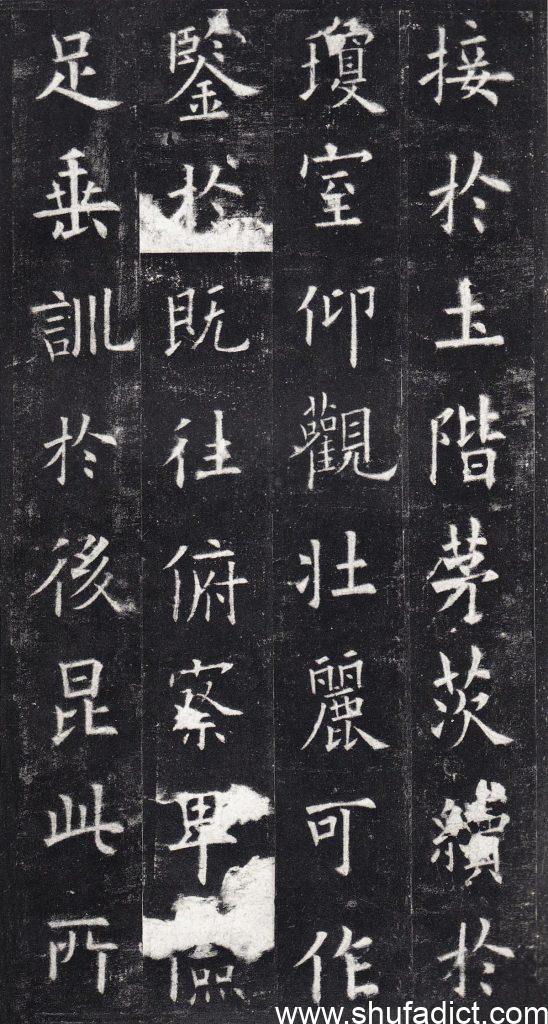 接於土階茅茨續於
瓊室仰觀壯麗可作
鑒於既往俯察卑儉
足垂訓於後昆此所
www.shufadict.com